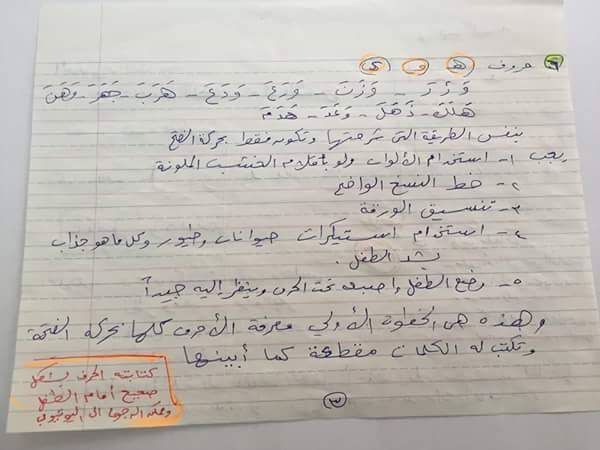 ٦ حروف هـ و ي
وَزَدَ - وَزَنَ - وَرَعَ - وَدَعَ - هَرَبَ - جَهَرَ - وَهَنَ
هَلَكَ - ذَهَلَ - وَعَدَ - هَدَمَ
بنفس الطريقة التي شرحتها وتكون فقط بحركة الفتح
يجب ١- استخدام الألوان ولو بأقلام الخشب الملونة
٢- خط النسخ الواضح
٣- تنسيق الورقة
٤- استخدام استيكرات حيوانات وطيور وكل ما هو جذاب
يشد الطفل.
٥- وضع الطفل واصبعه تحت الحرف وينظر إليه جيداً
وهذه هي الخطوة الأولي معرفة الأحرف كلها بحركة الفتحة
وتكتب له الكلمات مقطعة كما أبينها
كتابة الحرف بشكل
صحيح أمام الطفل
ويمكن الرجوع الى اليوتيوب
٣